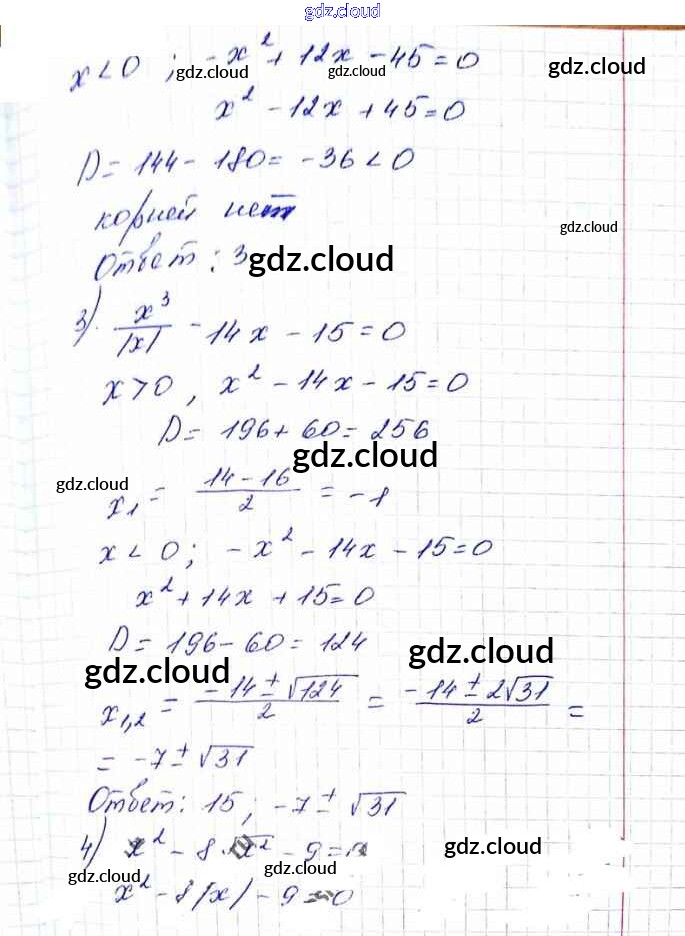 gdz.cloud
x < 0 ; -x² + 12x - 45 = 0
gdz.cloud gdz.cloud gdz.cloud
x² - 12x + 45 = 0
D = 144 - 180 = -36 < 0
корней нет
gdz.cloud
Ответ: 3
gdz.cloud
3) x³/|x| - 14x - 15 = 0
x > 0, x² - 14x - 15 = 0
D = 196 + 60 = 256
gdz.cloud
gdz.cloud
x₁ = (14 - 16)/2 = -1
x < 0; -x² - 14x - 15 = 0
x² + 14x + 15 = 0
D = 196 - 60 = 124
gdz.cloud
gdz.cloud
x₁,₂ = (-14 ± √124)/2 = (-14 ± 2√31)/2 =
= -7 ± √31
Ответ: 15; -7 ± √31
4) x² - 8√x² - 9 =
gdz.cloud
gdz.cloud
gdz.cloud
x² - 8|x| - 9 = 0
gdz.cloud